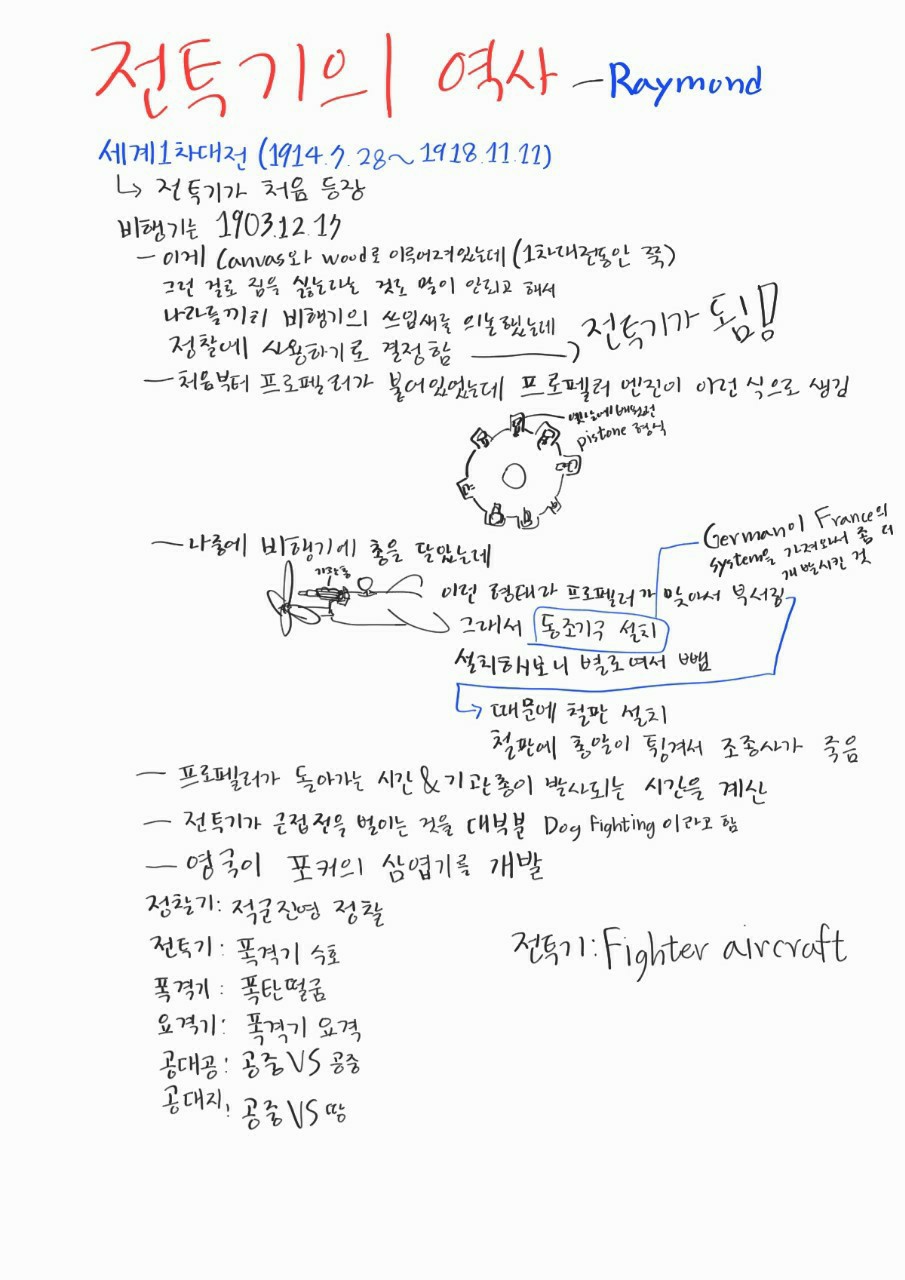 전투기의 역사 - Raymond
세계1차대전 (1914.7.28~1918.11.11)
↳ 전투기가 처음 등장
비행기는 1903.12.17
- 이게 Canvas와 wood로 이루어져있는데 (1차대전동안 쭉)
그런 걸로 짐을 싫는다는 것도 말이 안되고 해서
나라들끼리 비행기의 쓰임새를 의논했는데
정찰에 사용하기로 결정함 → 전투기가 됨!!
- 처음부터 프로펠러가 붙어있었는데 프로펠러 엔진이 이런 식으로 생김
옛날에 배웠던
pistone 형식
- 나중에 비행기에 총을 달았는데
German이 France의
system을 가져와서 좀 더
개발시킨 것
기관총
이런 형태라 프로펠러가 맞아서 부서짐
그래서 동조기구 설치
설치해보니 별로여서 뺌
↳ 때문에 철판 설치
철판에 총알이 튕겨서 조종사가 죽음
- 프로펠러가 돌아가는 시간 & 기관총이 발사되는 시간을 계산
- 전투기가 근접전을 벌이는 것을 대부분 Dog Fighting 이라고 함
- 영국이 포커의 삼엽기를 개발
정찰기: 적군진영 정찰
전투기: 폭격기 수호
전투기: Fighter aircraft
폭격기: 폭탄떨굼
요격기: 폭격기 요격
공대공: 공중 VS 공중
공대지: 공중 VS 땅